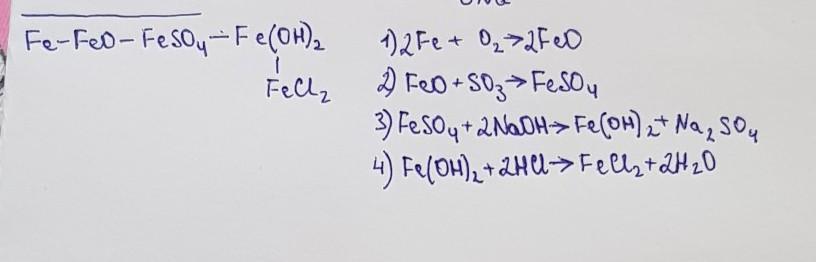 Fe-FeO-FeSO₄-Fe(OH)₂
FeCl₂
1) 2Fe + O₂→2FeO
2) FeO+SO₃→FeSO₄
3) FeSO₄+2NaOH→Fe(OH)₂+Na₂SO₄
4) Fe(OH)₂+2HCl→FeCl₂+2H₂O